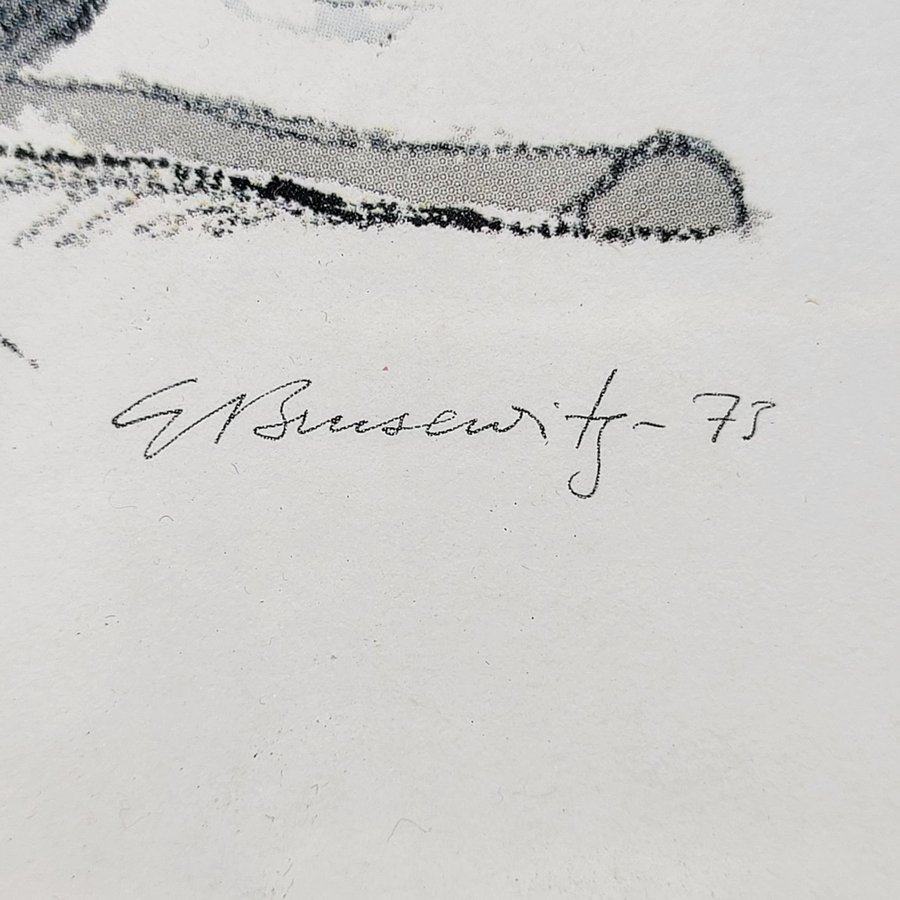 G Brusewitz - 73